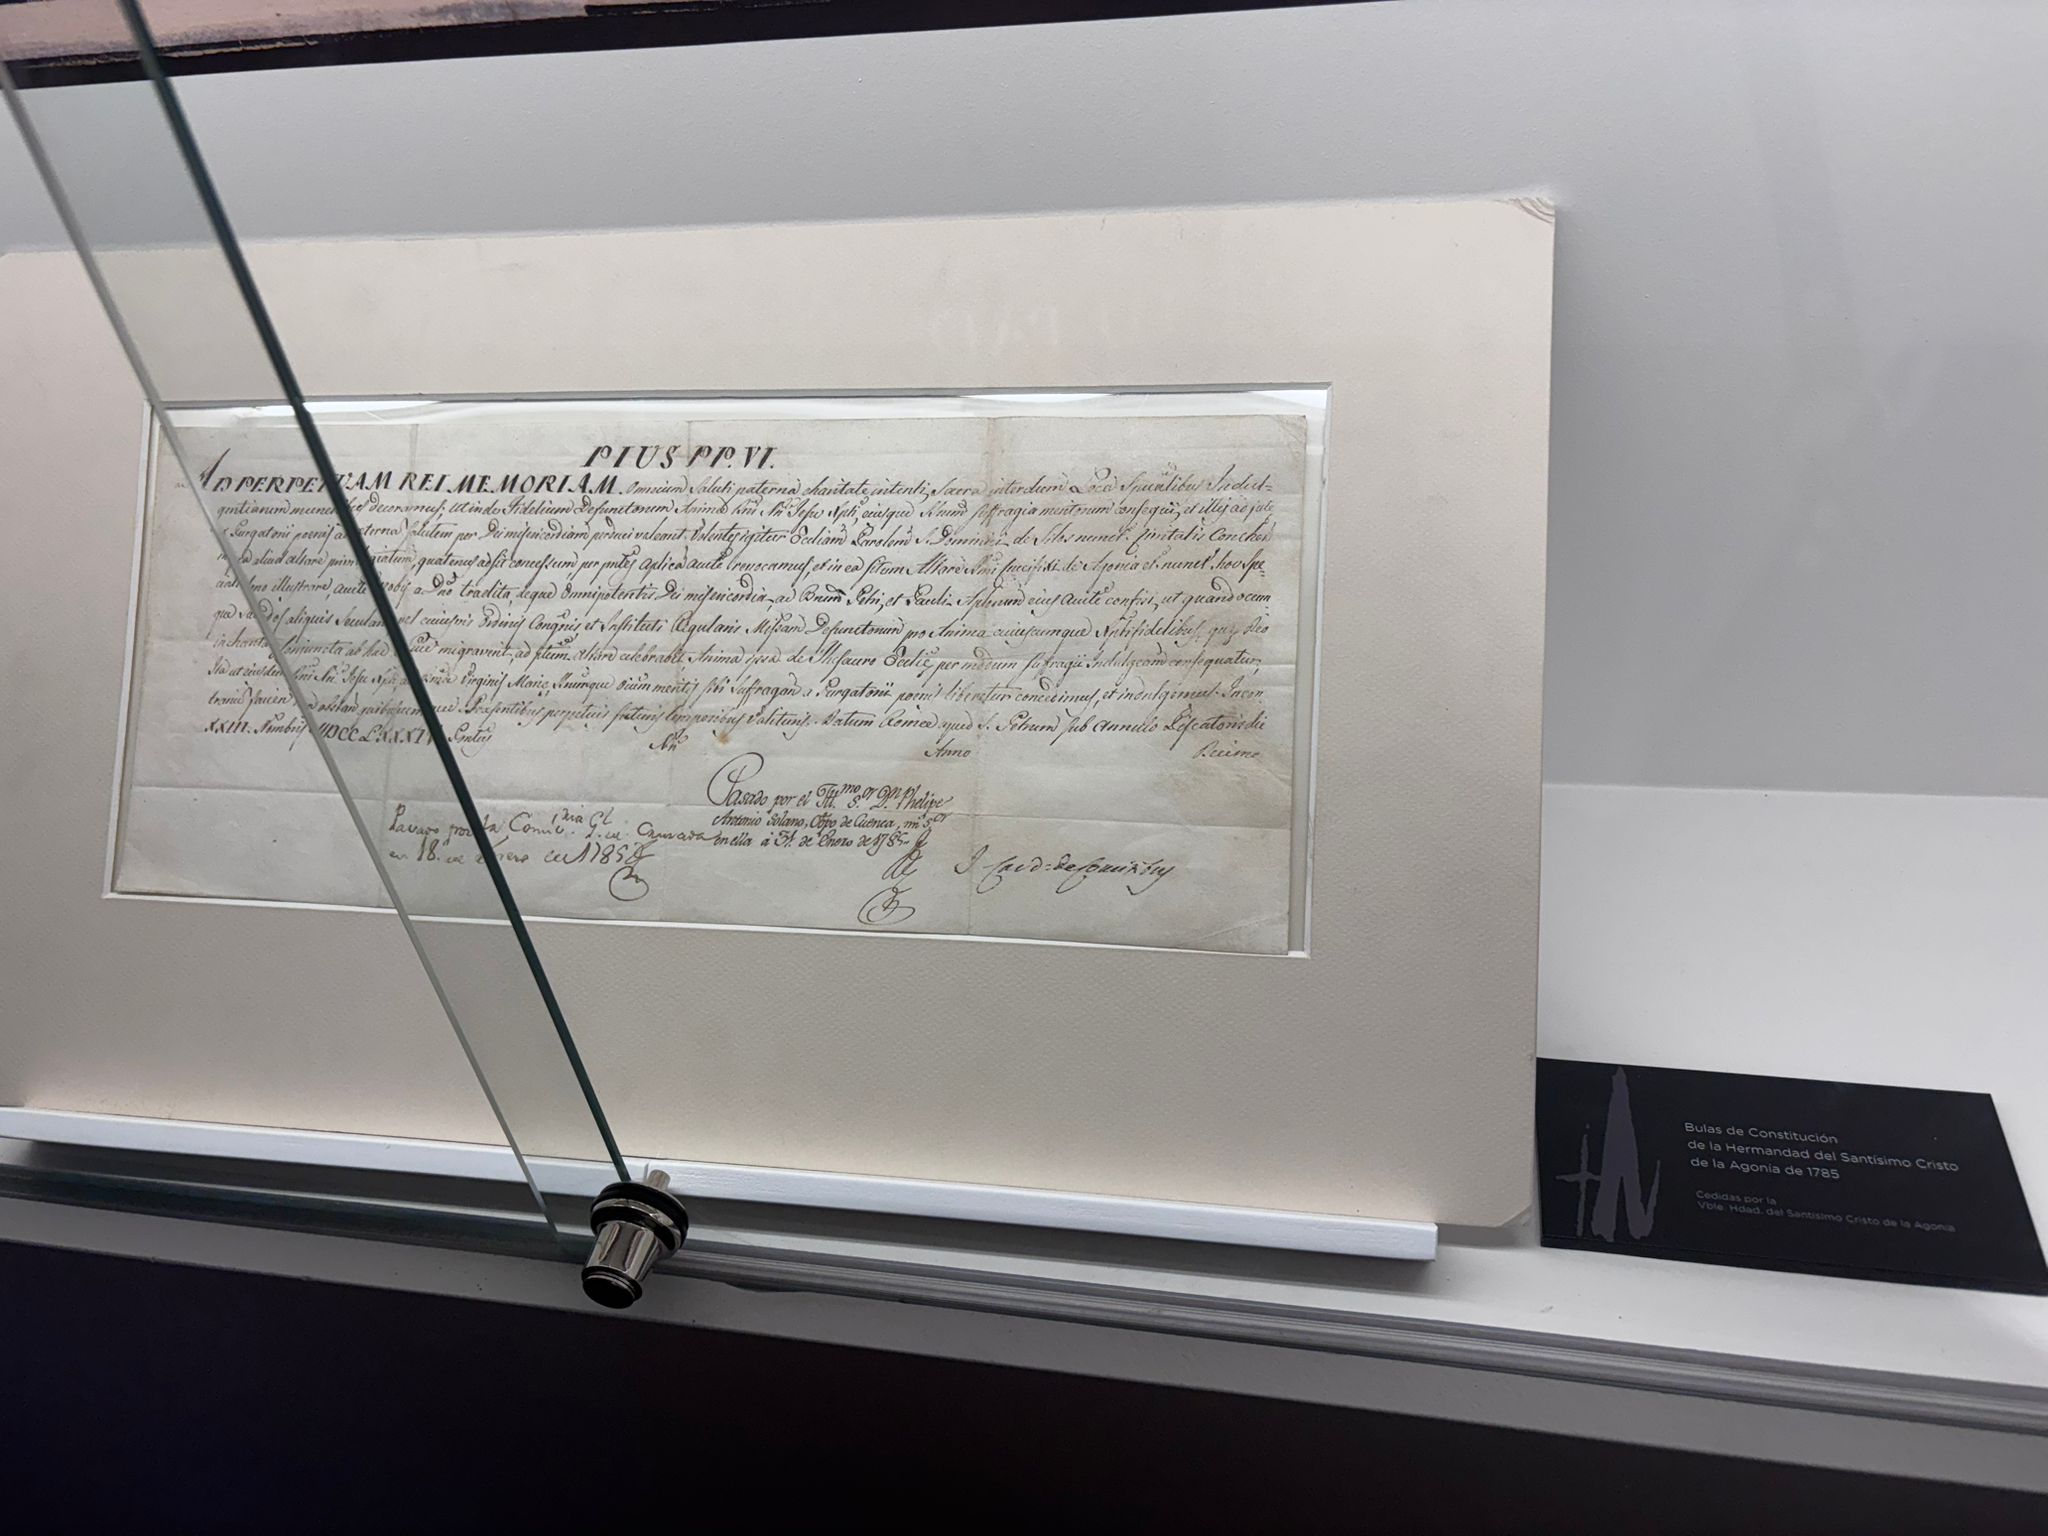 PIUS PP. VI.
AD PERPETUAM REI MEMORIAM. Omnium Saluti paterna charitate intenti, Sacra interdum Loca Spualibus Indul-
gentiarum muneribus decoramus, ut inde Fidelium Defunctorum Animæ Dni Nri Jesu Xpti, eiusque SSnum suffragia meritorum consequi, et illis adjutę
Purgatorii poenis ad æternam salutem per Dei misericordiam perduci valeant. Volentes igitur Eccliam Parolem S. Dominici de Silos nuncꝰ Civitatis Conchen
aliud altare privilegiatum, quatenus adsit concessum per pntes aplica aucte revocamus, et in ea situm Altare Smi Crucifixi de Agonia et nuncꝰ hoc Spe-
dono illustrare, aucte nobis a Dno tradita, deque Omnipotentis Dei misericordia, ac Bnum Petri, et Pauli Aplorum eius aucte confisi, ut quandocum
que aliquis Secularis, vel cuiusvis Ordinis Congnis, et Instituti Regularis Missam Defunctorum pro Anima cuiuscumque Xptifidelibus, quę Deo
in charitate conjuncta ab hac luce migraverit, ad ptum Altare celebrabit, Anima ipsa de Thesauro Ecclię per modum suffragii Indulgeam consequatur,
Ita ut eiusdem Dni Nri Jesu Xpti, ac Virginis Marię, SSnumque Oium meritis sibi suffragan a Purgatorii poenis liberetur concedimus, et indulgemus. In con
trarium facien non obstan quibuscumque. Præsentibus perpetuis futuris temporibus valituris. Datum Romæ apud S. Petrum sub Annulo Piscatoris die
XXIII. Novembris MDCCLXXXIV. Pontus Nri Anno Decimo
Pasado por el Illmo Sor Dn Phelipe
Antonio Solano, Obpo de Cuenca, mi Sor
en ella á 31 de Enero de 1785
Pasado por la Comisria Gl de Cruzada
en 18 de Enero de 1785
J. Card. de Comitibus
Bulas de Constitución
de la Hermandad del Santísimo Cristo
de la Agonía de 1785
Cedidas por la
Vble. Hdad. del Santísimo Cristo de la Agonía